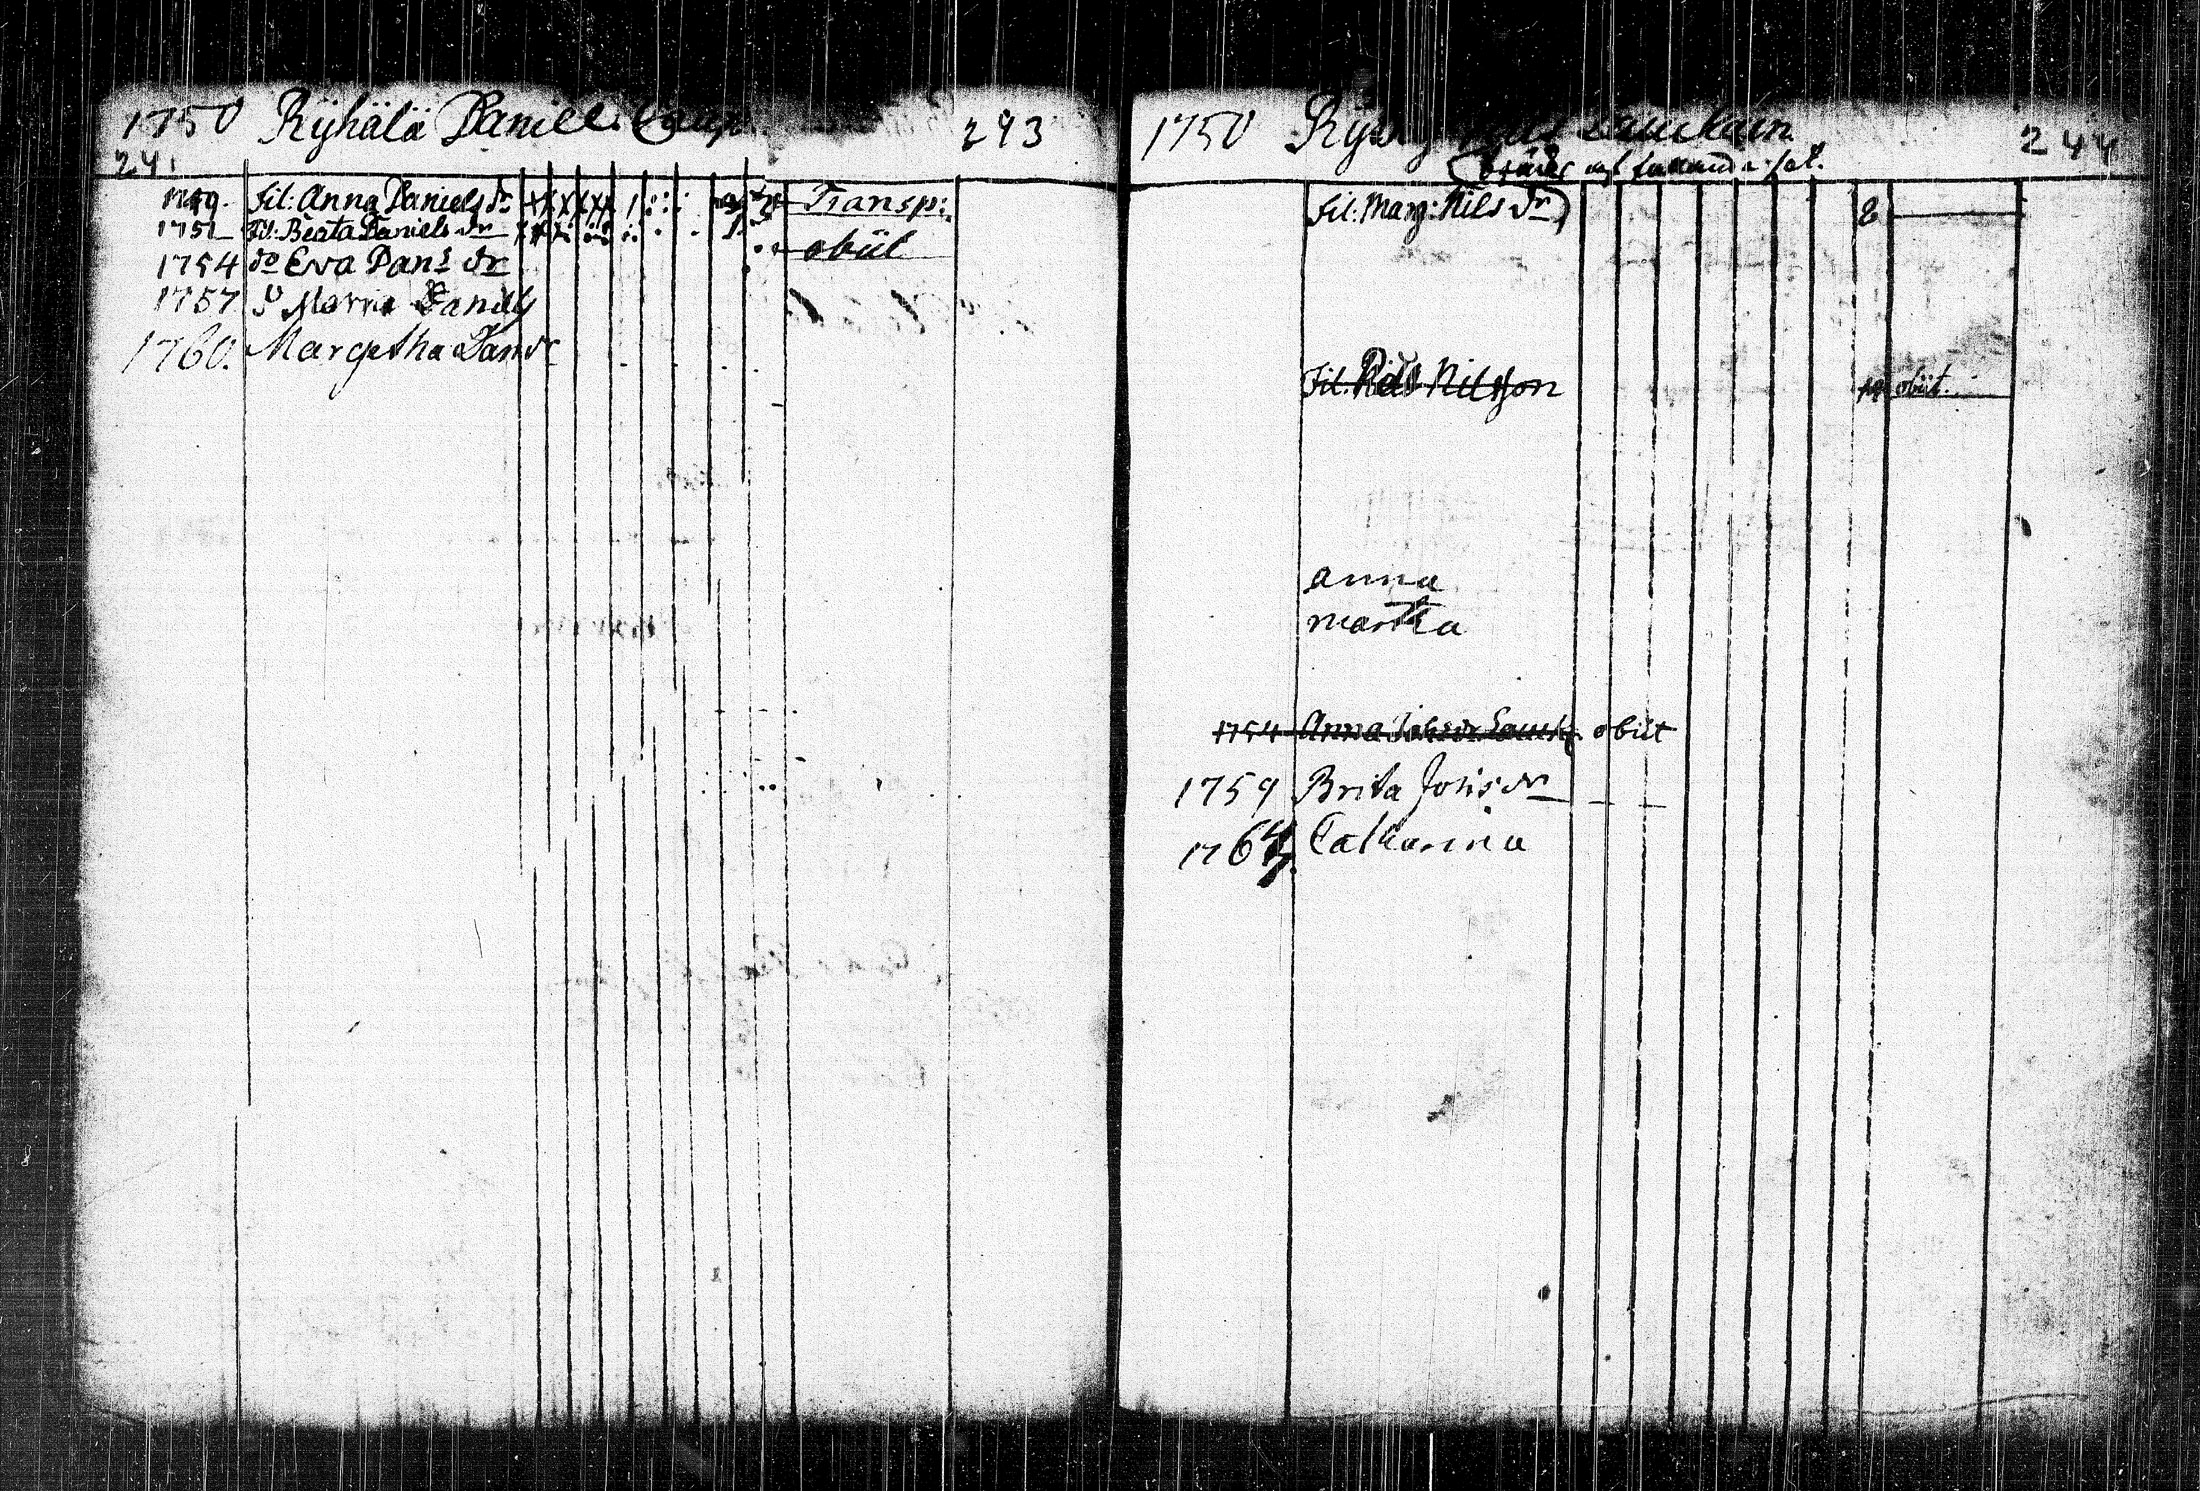 1750 Ryhälä Daniel 293
241
1749. fil: Anna Daniels dr Transp:
1751 fil: Beata Daniels dr obiit
1754 do Eva Dans dr
1757 Maria Daniels
1760. Margetha Dansdr
1750 244
fil: Marg: Nils dr) 8
fil. Nils Nilsson obiit.
anna
martha
1754 Anna obiit
1759 Brita Johsdr
1764 Catharina